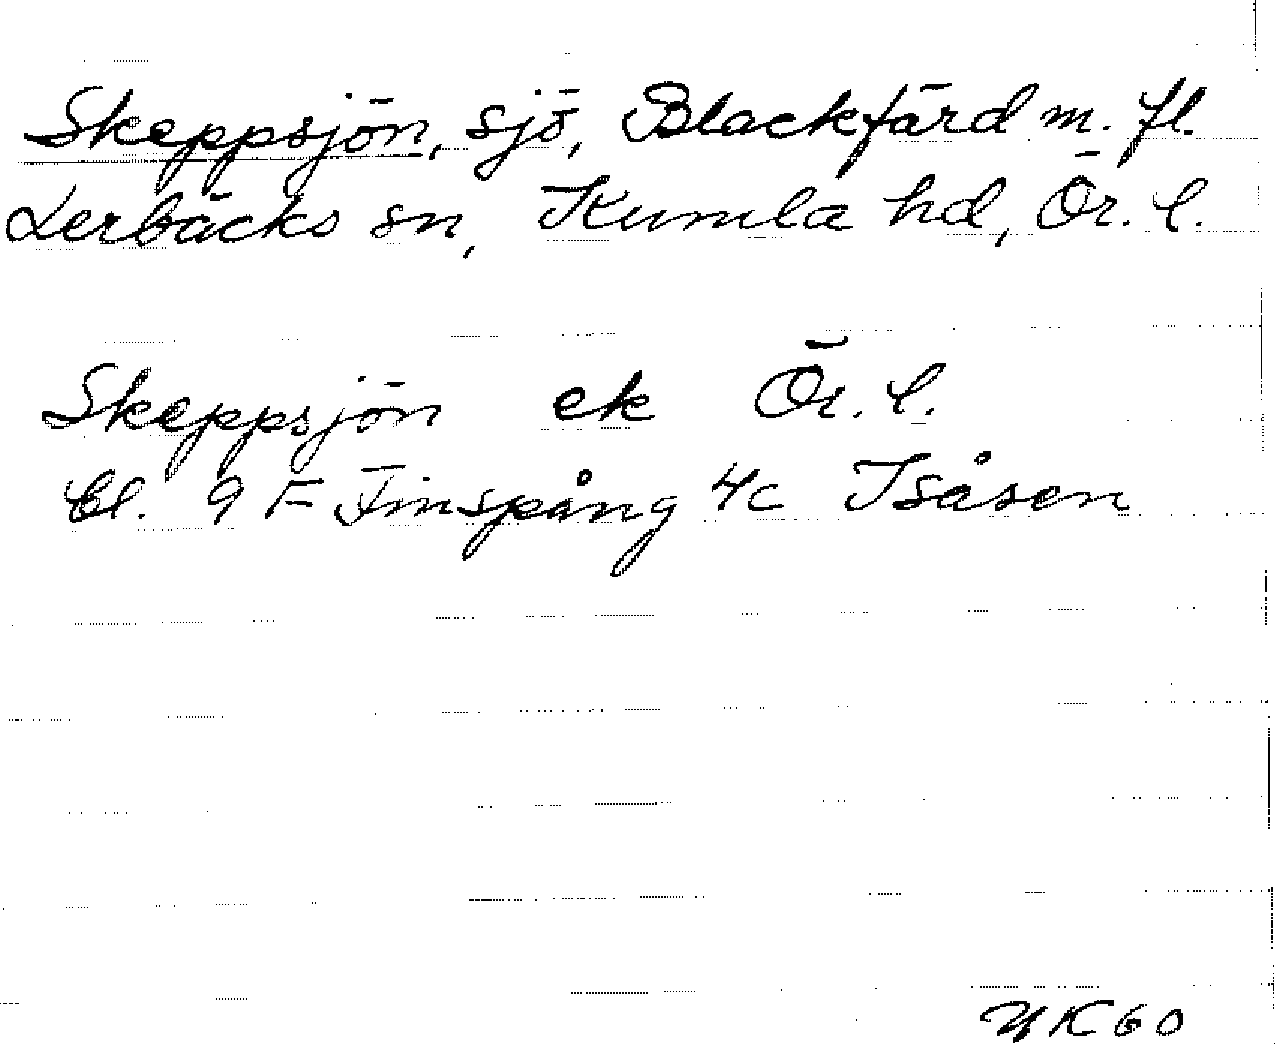 Skeppsjön, sjö, Blackfärd m. fl.
Lerbäcks sn, Kumla hd, Ör. l.
Skeppsjön ek Ör. l.
Bl. 9 F Finspång 4c Isåsen
YK 60